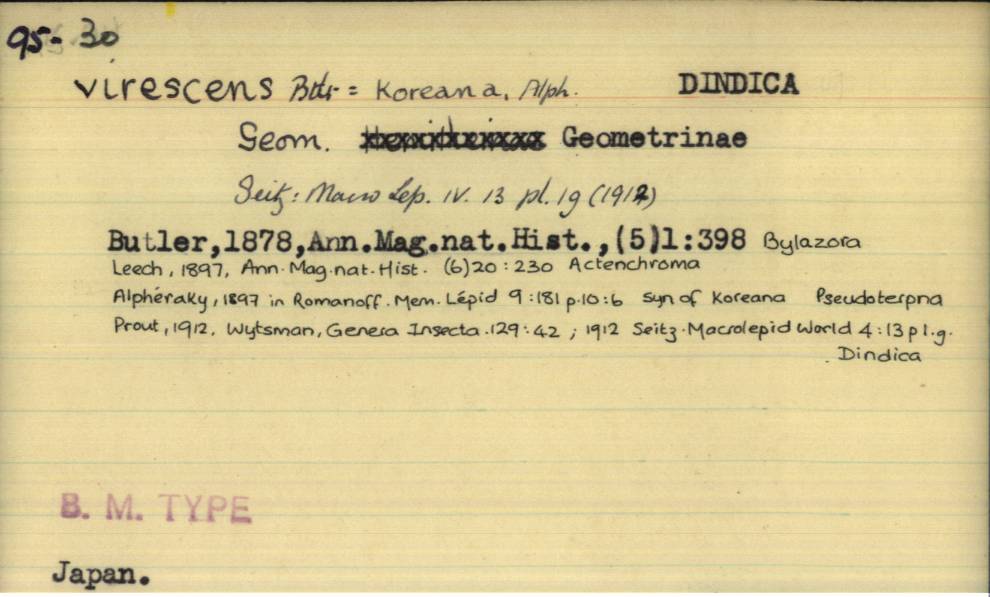 95-30
virescens Btlr = Koreana, Alph. DINDICA
Geom. Geometrinae
Seitz: Macro Lep. IV. 13 pl. 1g (1912)
Butler,1878,Ann.Mag.nat.Hist.,(5)1:398 Bylazora
Leech, 1897, Ann. Mag. nat. Hist. (6)20:230 Actenchroma
Alphéraky, 1897 in Romanoff. Mem. Lépid 9:181 p.10:6 syn of Koreana Pseudoterpna
Prout, 1912, Wytsman, Genera Insecta. 129:42 ; 1912 Seitz. Macrolepid World 4:13 pl.g.
Dindica
B. M. TYPE
Japan.